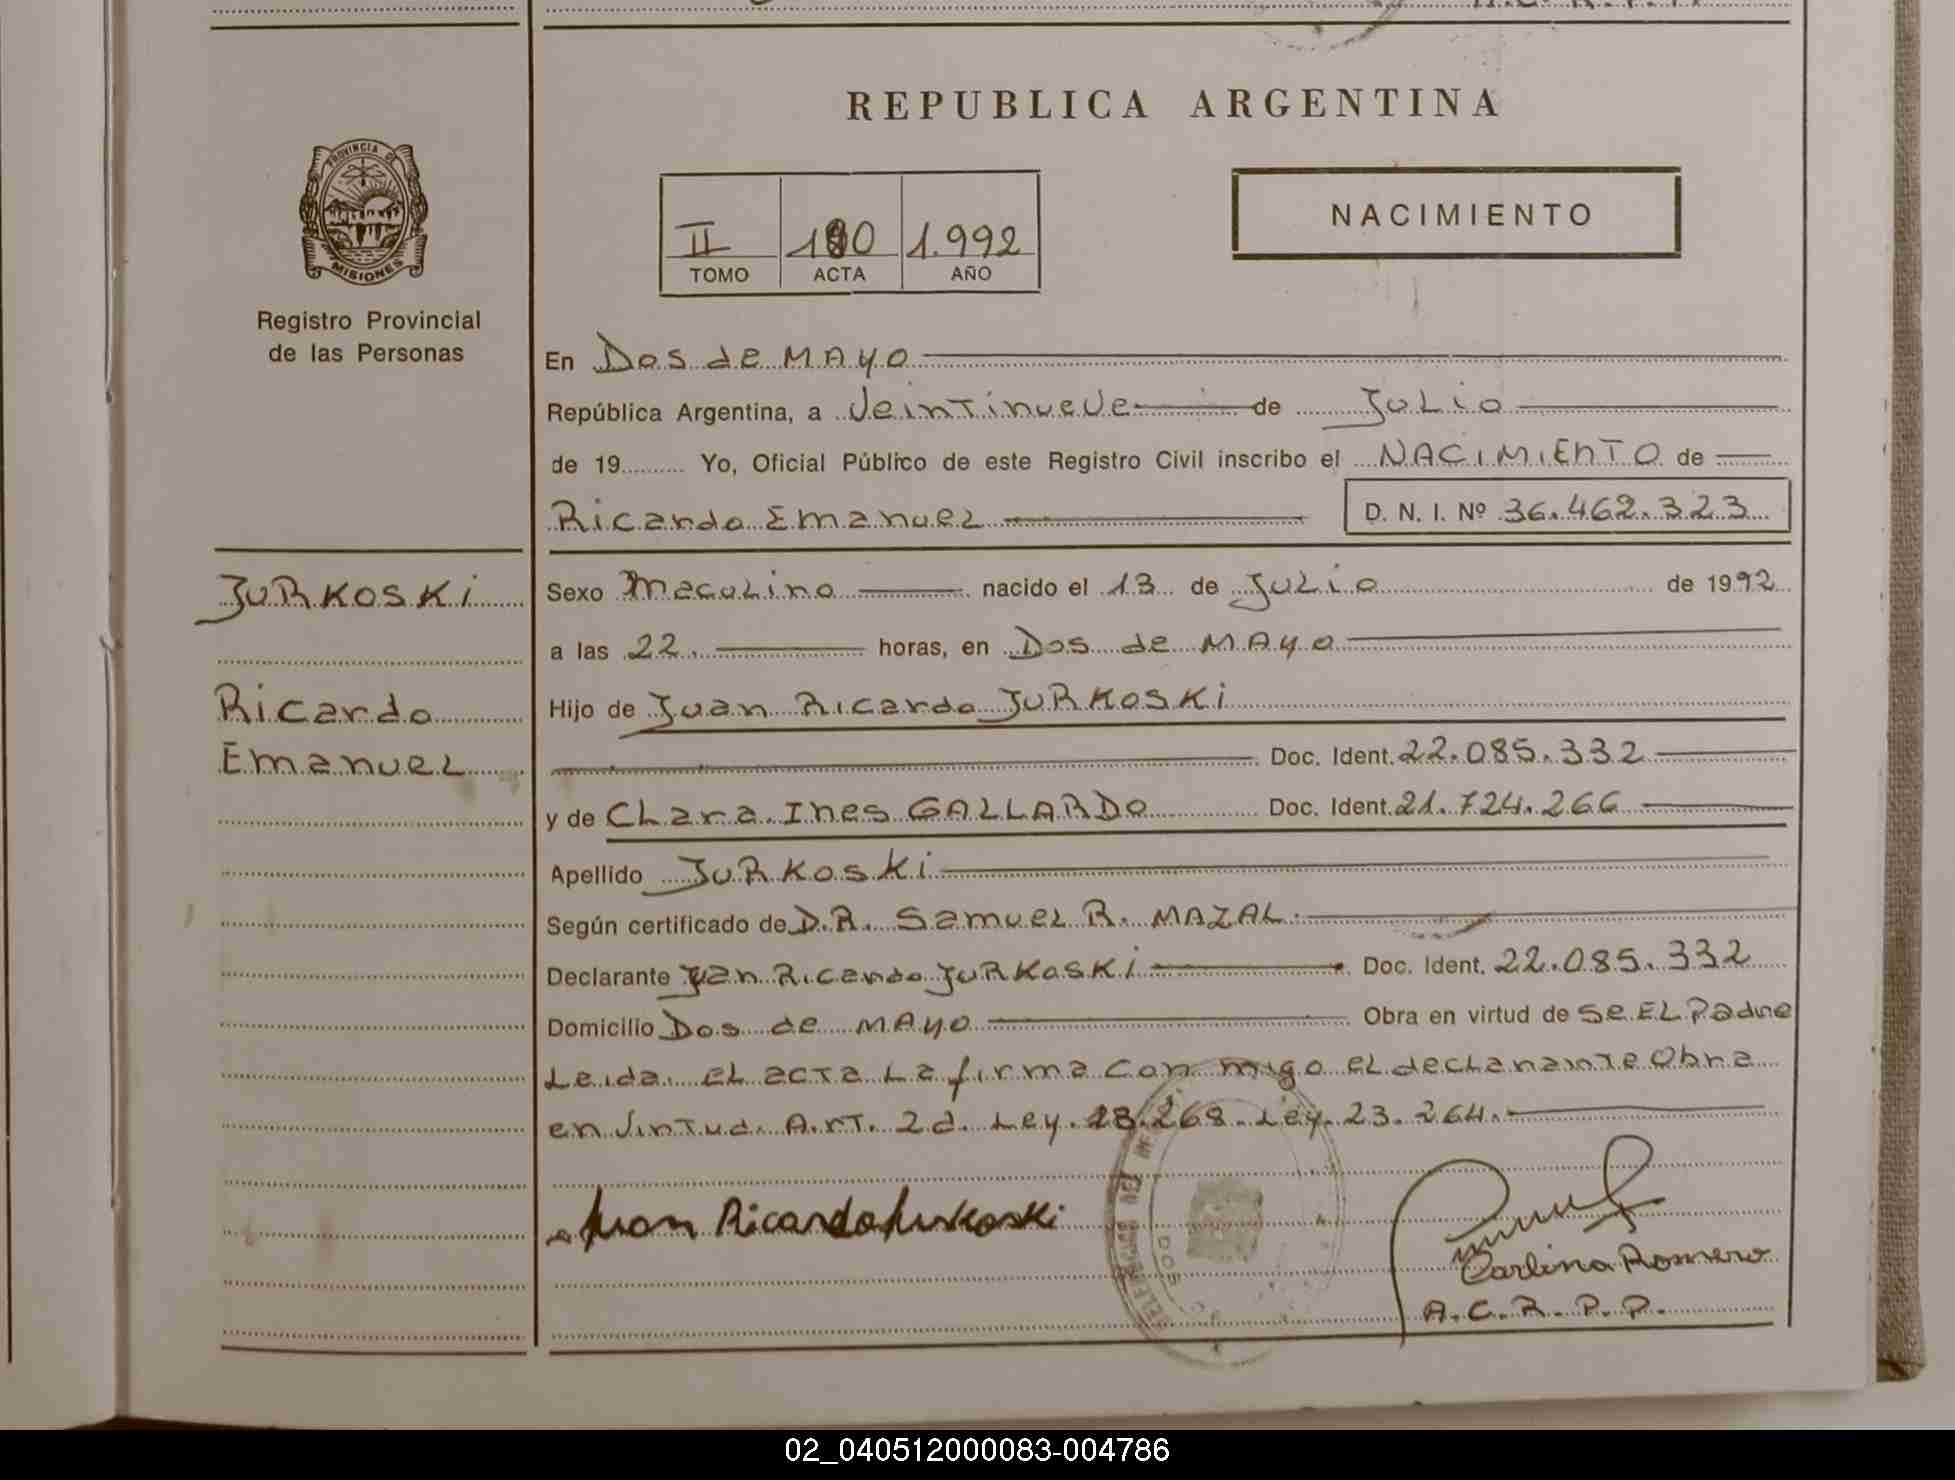 REPUBLICA ARGENTINA
PROVINCIA DE
MISIONES
Registro Provincial
de las Personas
II 1.992
TOMO ACTA AÑO
NACIMIENTO
En Dos de MAYO
República Argentina, a Veintinueve de Julio
de 19 Yo, Oficial Público de este Registro Civil inscribo el NACIMIENTO de
Ricardo Emanuel D. N. I. Nº 36.462.323
JURKOSKI
Ricardo
Emanuel
Sexo Maculino nacido el 13 de Julio de 1992
a las 22. horas, en Dos de MAYO
Hijo de Juan Ricardo JURKOSKI
Doc. Ident. 22.085.332
y de Clara Ines GALLARDO Doc. Ident. 21.724.266
Apellido JURKOSKI
Según certificado de D.R. Samuel R. MAZAL.
Declarante Juan Ricardo JURKOSKI Doc. Ident. 22.085.332
Domicilio Dos de MAYO Obra en virtud de Se EL Padre
Leida el acta La firma con migo el declarante Obra
en Virtud. Art. 2d. Ley. 18.268. Ley. 23.264.
Juan Ricardo Jurkoski
DOS
Carlina Romero
A.C.R.P.P.
02_040512000083-004786